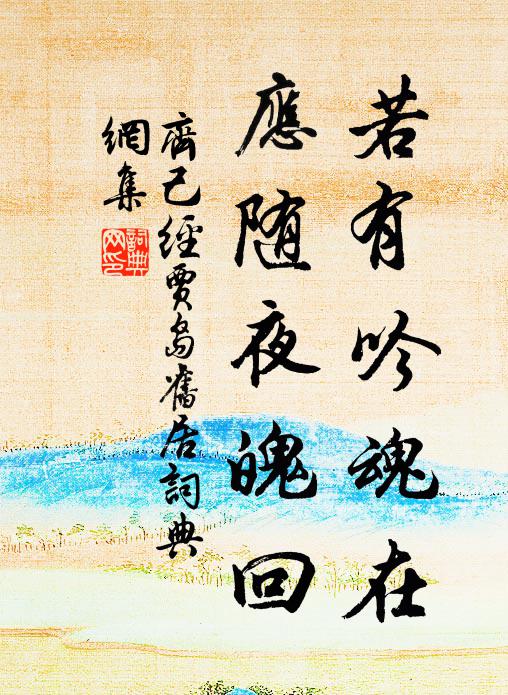 若有吟魂在
應随夜魄回
齊己經賈島舊居詞典
網集
詞典
网印